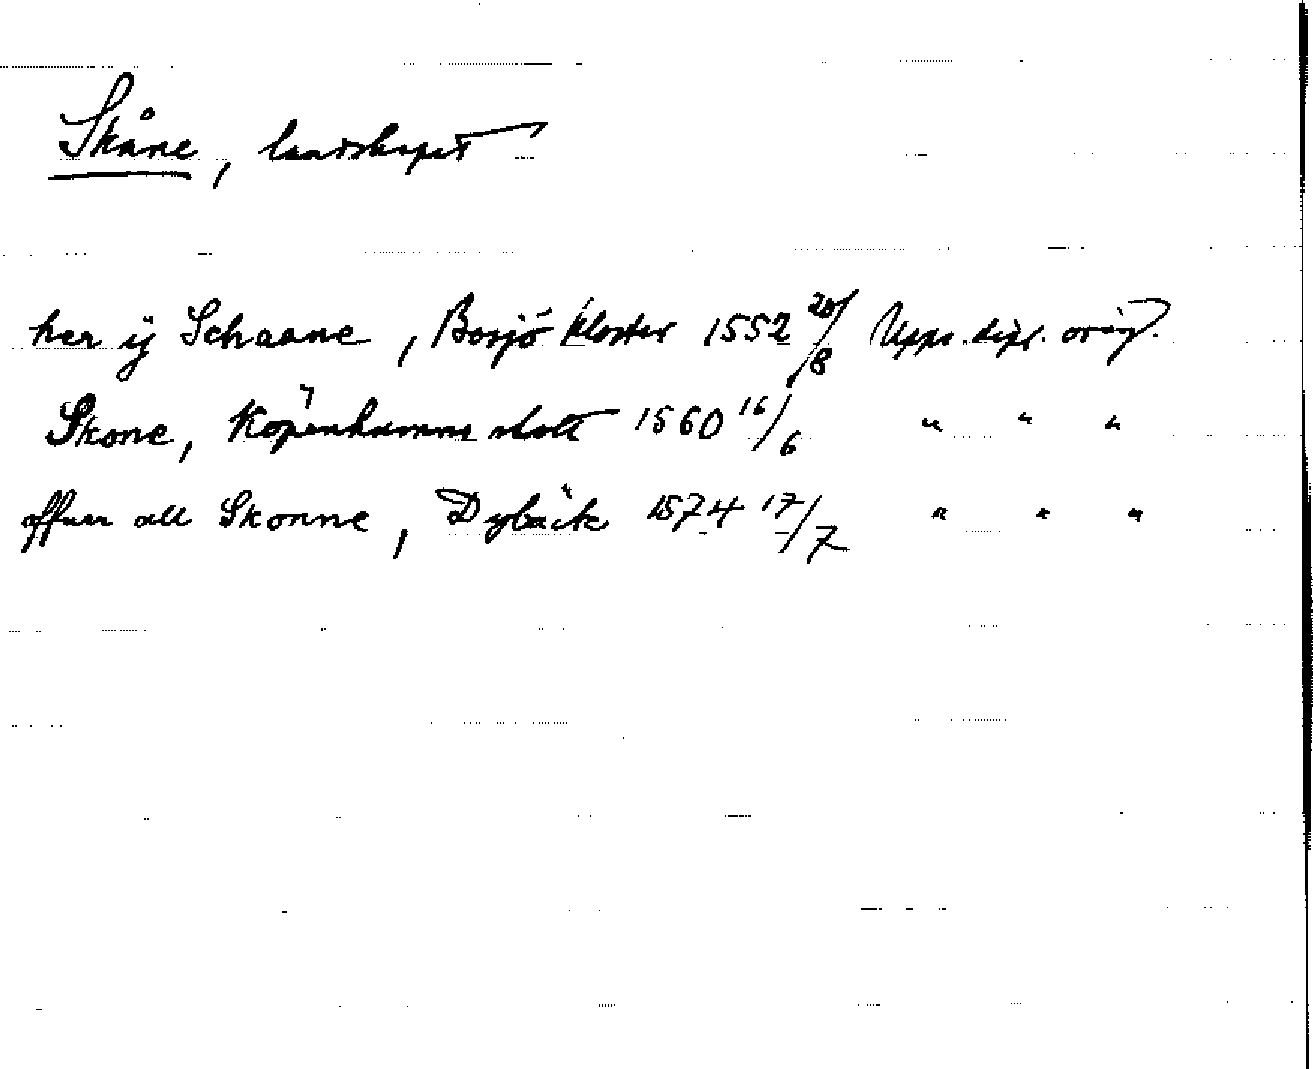 Skåne, landskapet
her ÿ Schaane, Bosjö kloster 1552 20/8 Upps. dipl. orig.
Skone, Köpenhamns slott 1560 16/6 " " "
offuer all Skonne, Dybäck 1574 17/7 " " "